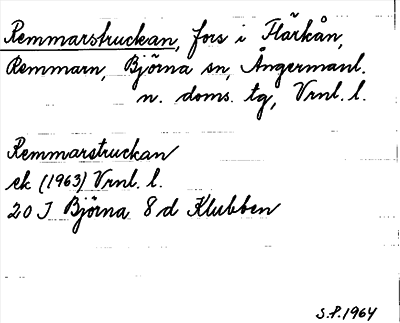 Remmarstruckan, fors i Flärkån,
Remmarn, Björna sn, Ångermanl.
n. doms. tg, Vrnl. l.
Remmarstruckan
ek (1963) Vrnl. l.
20 J Björna 8 d Klubben
S.P. 1964